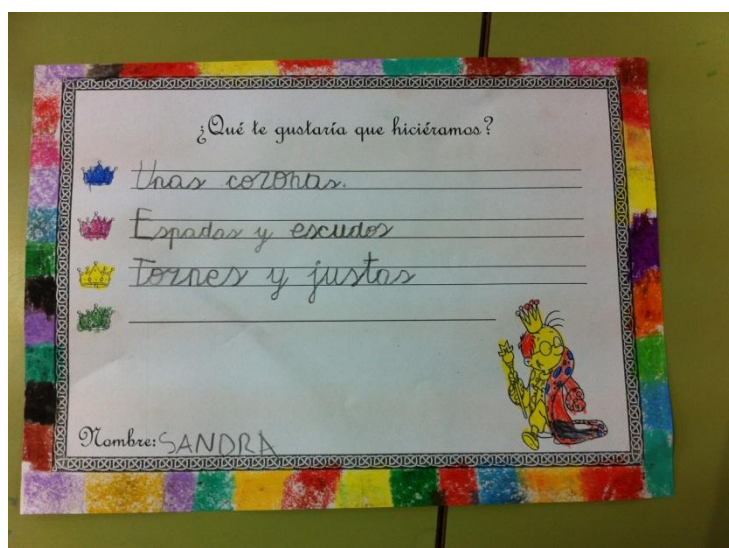 ¿Qué te gustaría que hiciéramos?
Unas coronas.
Espadas y escudos
Tornes y justas
Nombre: SANDRA